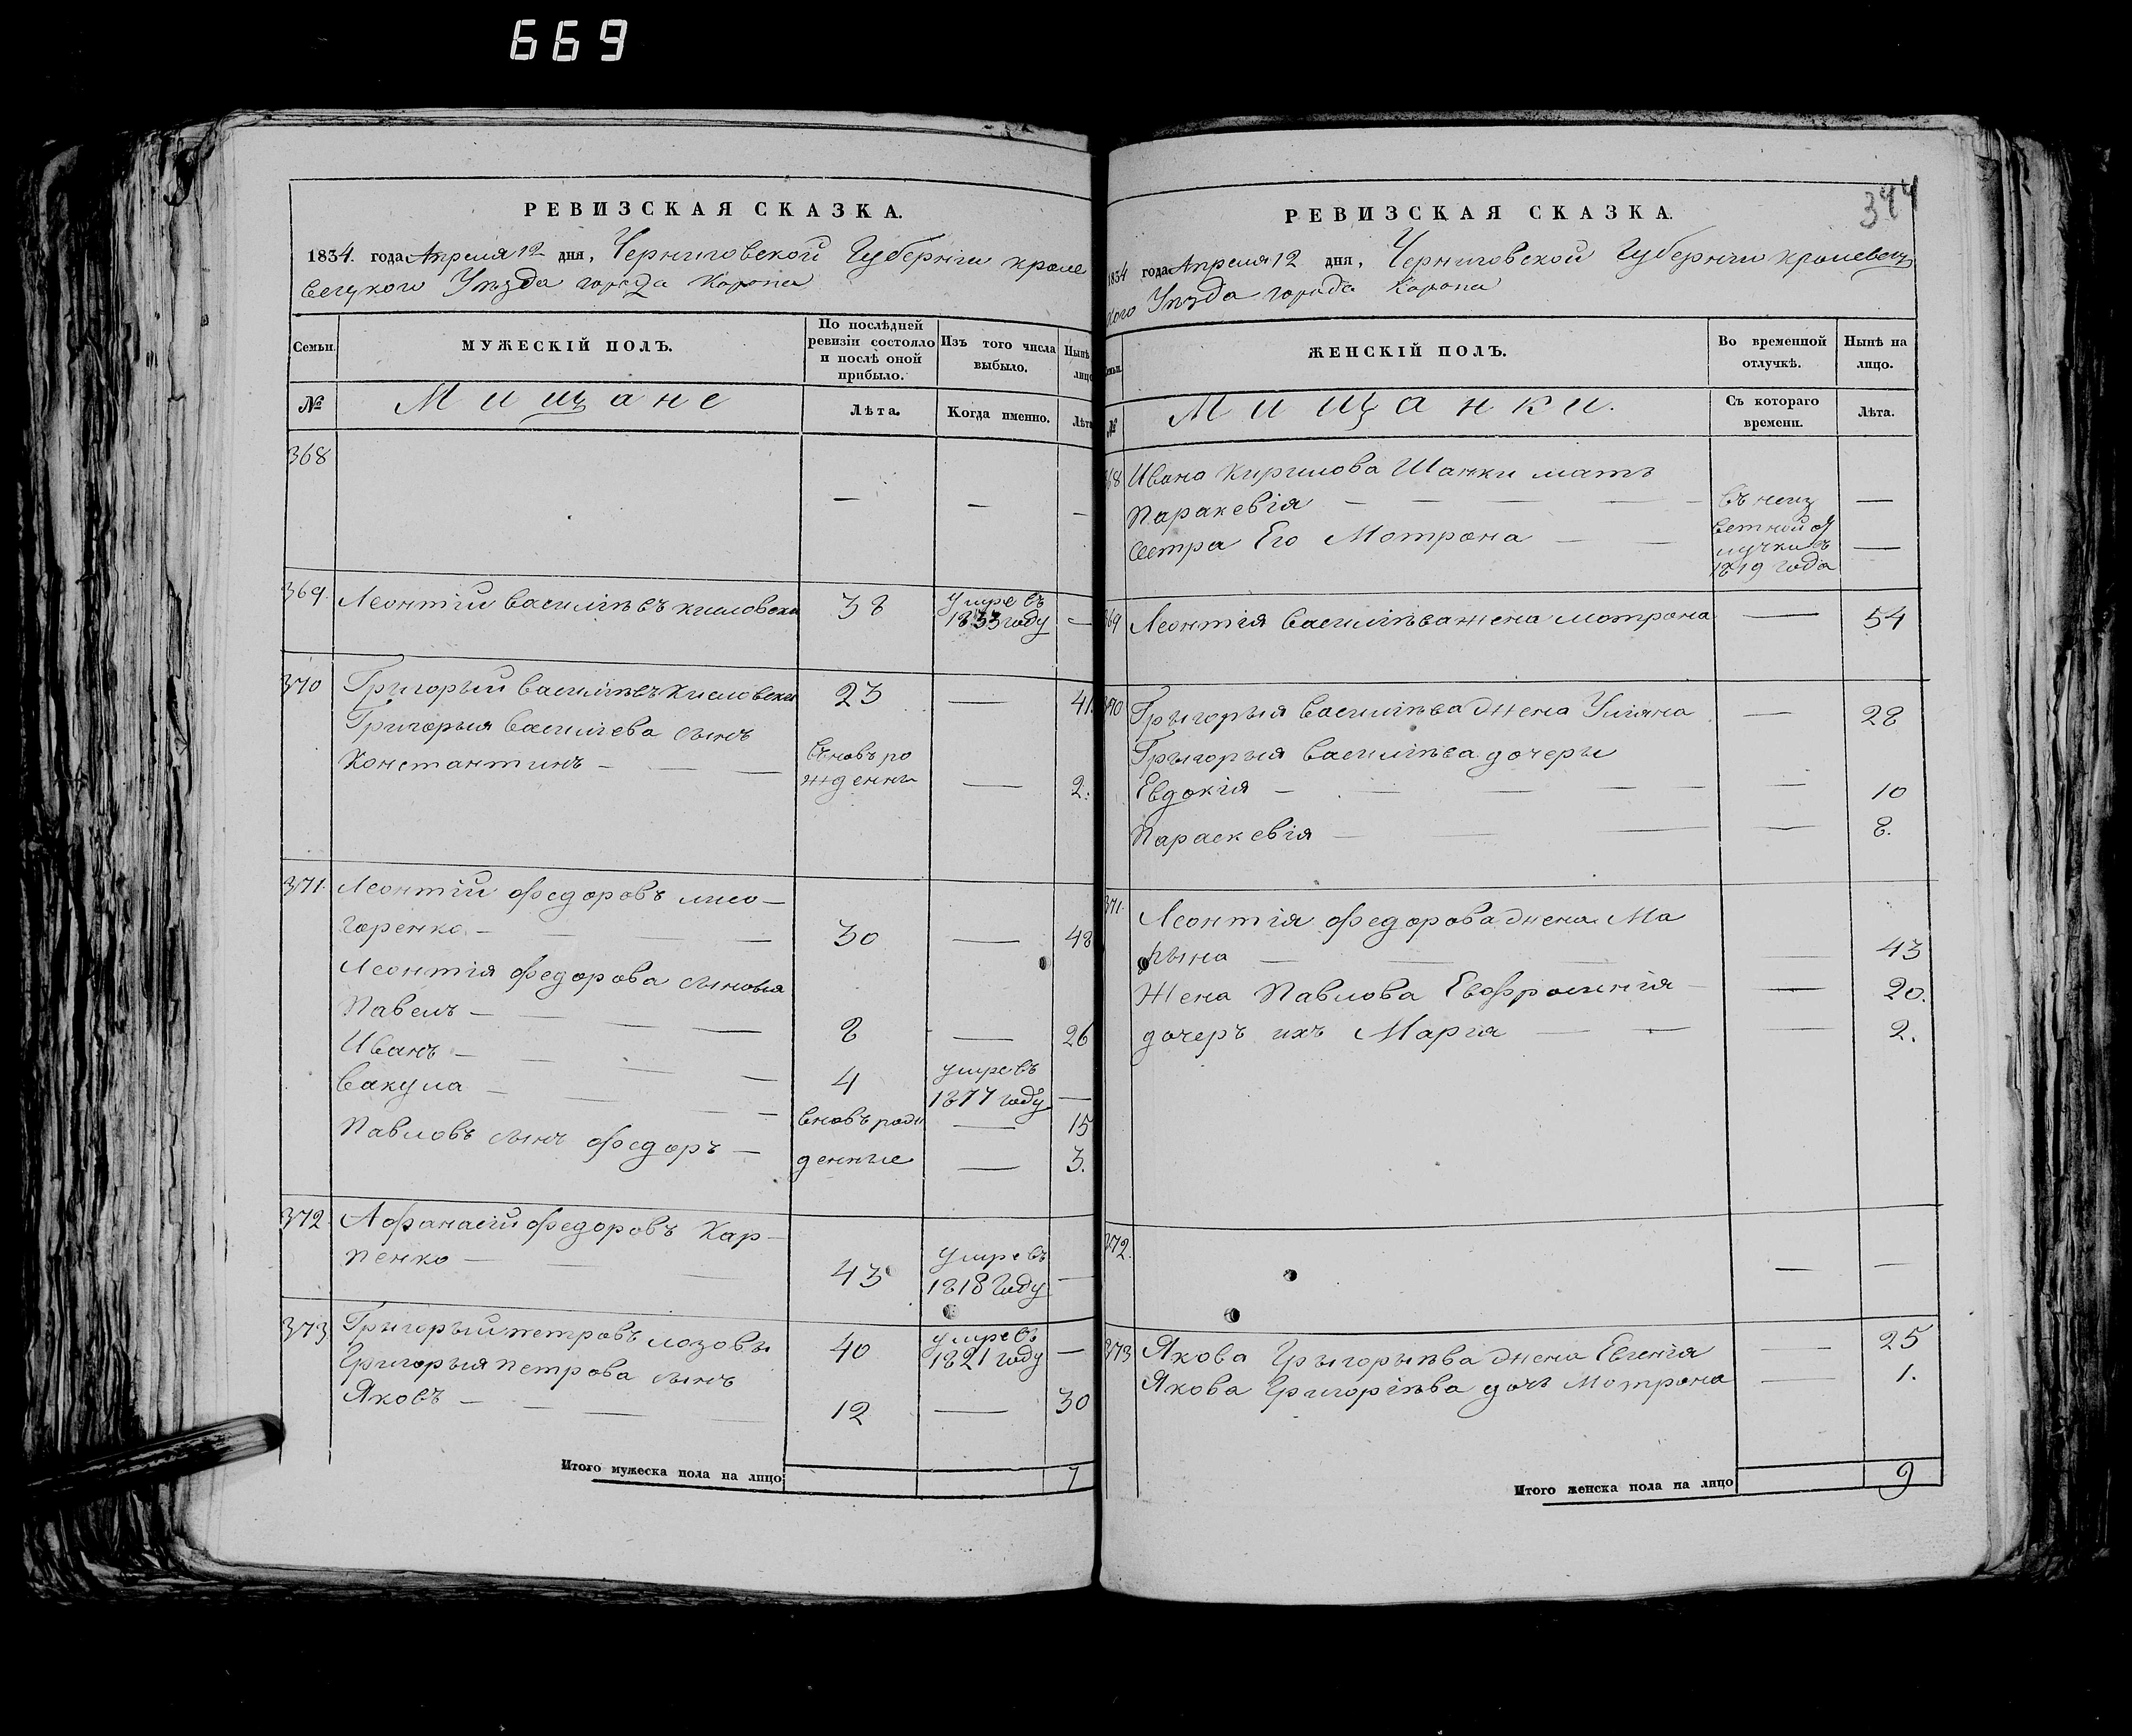 669
РЕВИЗСКАЯ СКАЗКА.
1834. года Апреля 12 дня, Черниговской Губернии кроле
вецкого Уѣзда города Коропа
Семьи.
МУЖЕСКІЙ ПОЛЪ.
По послѣдней
ревизіи состояло
и послѣ оной
прибыло.
Изъ того числа
выбыло.
Нынѣ
лицо
№
Мищане
Лѣта.
Когда именно.
Лѣта
368
— — —
369. Леонтий Василѣевъ Кисловски 38 умре въ
1833 году —
370 Григорый Василѣевъ Кисловски 23 — 41.
Григорыя Василіева сынъ
Константинъ — — — вновъ ро
жденны — 2.
371. Леонтий Федоровъ Лисо—
горенко — — — 30 — 48
Леонтія Федорова сыновя
Павелъ — — — — 8 — 26
Иванъ — — — 4 умре въ
1877 году —
Вакула — — — — вновъ рож — 15
Павловъ сынъ Федоръ — денные — 3.
372. Афанасий Федоровъ Кар—
пенко — — — 43 умре въ
1818 году —
373 Григорый Петровъ Лозовы 40 умре въ
1821 году —
Григорыя Петрова сынъ
Яковъ — — — — 12 — 30
Итого мужеска пола на лицо 7
344
РЕВИЗСКАЯ СКАЗКА.
1834 года Апреля 12 дня, Черниговской Губернии кролевец
кого Уѣзда города Коропа
Семьи.
ЖЕНСКІЙ ПОЛЪ.
Во временной
отлучкѣ.
Нынѣ на
лицо.
№
Мищанки.
Съ котораго
времени.
Лѣта.
368 Ивана Кирилова Шапки мать
Паракевія — — — — — въ неиз —
вѣстной от
Сестра Его Мотрона — — лучки съ —
1819 года
369 Леонтія Василѣва жена Мотрона — 54
370 Грыгорыя Василѣва жена Улияна — 28
Грыгорыя Василѣва дочеры
Евдокія — — — — — — 10
Параскевія — — — — 8.
371. Леонтія Федорова жена Ма
рына — — — — 43
Жена Павлова Евфросинія — — 20.
дочеръ ихъ Мария — — — 2.
372. — —
373 Якова Грыгорыѣва жена Евгенія — 25
Якова Григоріѣва дочь Мотрона — 1.
Итого женска пола на лицо 9